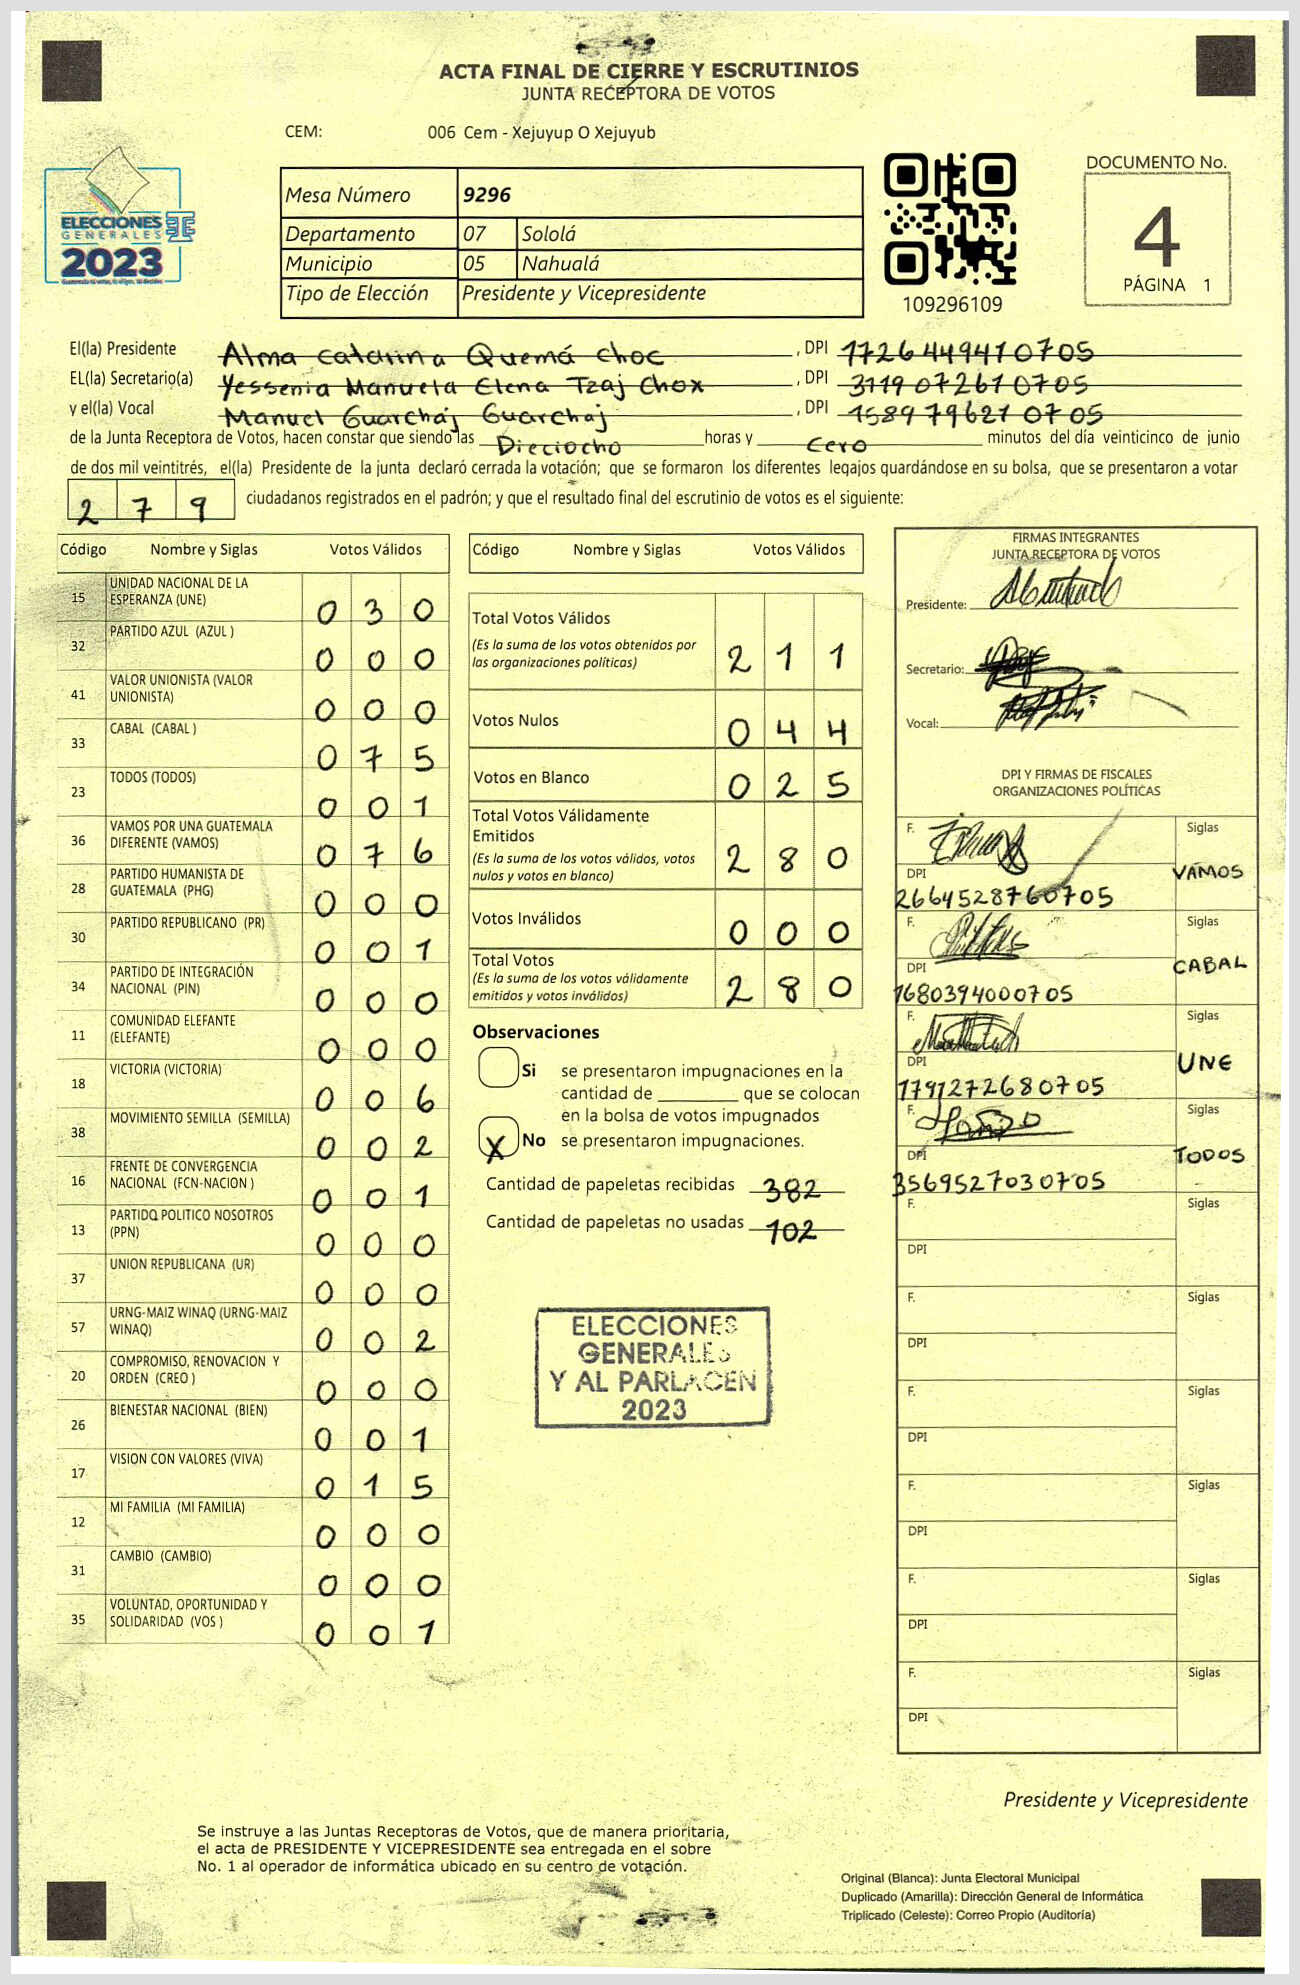 ACTA FINAL DE CIERRE Y ESCRUTINIOS
JUNTA RECEPTORA DE VOTOS
CEM: 006 Cem - Xejuyup O Xejuyub
ELECCIONES
GENERALES
2023
Mesa Número 9296
Departamento 07 Sololá
Municipio 05 Nahualá
Tipo de Elección Presidente y Vicepresidente
109296109
DOCUMENTO No.
4
PÁGINA 1
El(la) Presidente Alma Catarina Quemá Choc , DPI 1726449410705
EL(la) Secretario(a) Yessenia Manuela Elena Tzaj Chox , DPI 3119072610705
y el(la) Vocal Manuel Guarchaj Guarchaj , DPI 1589796210705
de la Junta Receptora de Votos, hacen constar que siendo las Dieciocho horas y Cero minutos del día veinticinco de junio
de dos mil veintitrés, el(la) Presidente de la junta declaró cerrada la votación; que se formaron los diferentes legajos guardándose en su bolsa, que se presentaron a votar
279 ciudadanos registrados en el padrón; y que el resultado final del escrutinio de votos es el siguiente:
Código Nombre y Siglas Votos Válidos
15 UNIDAD NACIONAL DE LA
ESPERANZA (UNE) 030
32 PARTIDO AZUL (AZUL ) 000
41 VALOR UNIONISTA (VALOR
UNIONISTA) 000
33 CABAL (CABAL ) 075
23 TODOS (TODOS) 001
36 VAMOS POR UNA GUATEMALA
DIFERENTE (VAMOS) 076
28 PARTIDO HUMANISTA DE
GUATEMALA (PHG) 000
30 PARTIDO REPUBLICANO (PR) 001
34 PARTIDO DE INTEGRACIÓN
NACIONAL (PIN) 000
11 COMUNIDAD ELEFANTE
(ELEFANTE) 000
18 VICTORIA (VICTORIA) 006
38 MOVIMIENTO SEMILLA (SEMILLA) 002
16 FRENTE DE CONVERGENCIA
NACIONAL (FCN-NACION ) 001
13 PARTIDO POLITICO NOSOTROS
(PPN) 000
37 UNION REPUBLICANA (UR) 000
57 URNG-MAIZ WINAQ (URNG-MAIZ
WINAQ) 002
20 COMPROMISO, RENOVACION Y
ORDEN (CREO ) 000
26 BIENESTAR NACIONAL (BIEN) 001
17 VISION CON VALORES (VIVA) 015
12 MI FAMILIA (MI FAMILIA) 000
31 CAMBIO (CAMBIO) 000
35 VOLUNTAD, OPORTUNIDAD Y
SOLIDARIDAD (VOS ) 001
Código Nombre y Siglas Votos Válidos
Total Votos Válidos
(Es la suma de los votos obtenidos por
las organizaciones políticas) 211
Votos Nulos 044
Votos en Blanco 025
Total Votos Válidamente
Emitidos
(Es la suma de los votos válidos, votos
nulos y votos en blanco) 280
Votos Inválidos 000
Total Votos
(Es la suma de los votos válidamente
emitidos y votos inválidos) 280
Observaciones
Si se presentaron impugnaciones en la
cantidad de ________ que se colocan
en la bolsa de votos impugnados
X No se presentaron impugnaciones.
Cantidad de papeletas recibidas 382
Cantidad de papeletas no usadas 102
ELECCIONES
GENERALES
Y AL PARLACEN
2023
FIRMAS INTEGRANTES
JUNTA RECEPTORA DE VOTOS
Presidente:
Secretario:
Vocal:
DPI Y FIRMAS DE FISCALES
ORGANIZACIONES POLÍTICAS
F. Siglas
VAMOS
DPI
2664528760705
F. Siglas
CABAL
DPI
1680394000705
F. Siglas
UNE
DPI
1791272680705
F. Siglas
TODOS
DPI
3569527030705
F. Siglas
DPI
F. Siglas
DPI
F. Siglas
DPI
F. Siglas
DPI
F. Siglas
DPI
F. Siglas
DPI
Presidente y Vicepresidente
Se instruye a las Juntas Receptoras de Votos, que de manera prioritaria,
el acta de PRESIDENTE Y VICEPRESIDENTE sea entregada en el sobre
No. 1 al operador de informática ubicado en su centro de votación.
Original (Blanca): Junta Electoral Municipal
Duplicado (Amarilla): Dirección General de Informática
Triplicado (Celeste): Correo Propio (Auditoría)